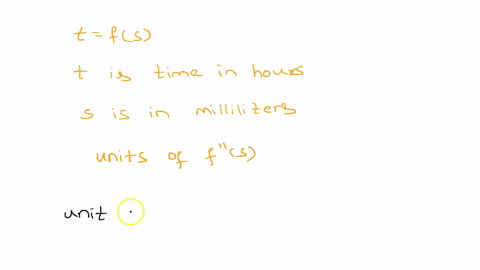 t = f(s)
t is time in hours
s is in milliliters
units of f"(s)
unit